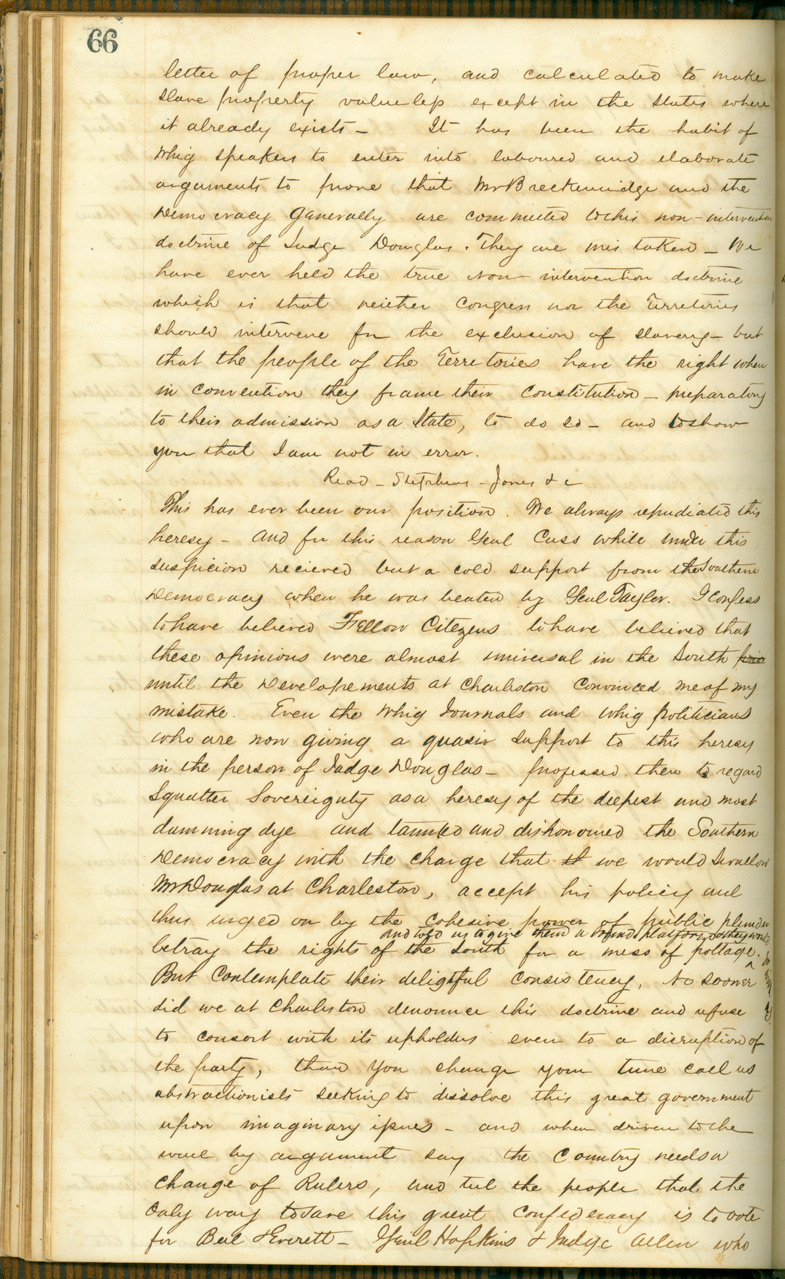 66
letter of proper law, and calculated to make
slave property valueless except in the states where
it already exists – It has been the habit of
Whig speakers to enter into laboured and elaborate
arguments to prove that Mr Breckenridge and the
Democracy generally are committed to this non-intervention
doctrine of Judge Douglas. They are mistaken – We
have ever held the true Non-intervention doctrine
which is that neither Congress nor the Territories
should intervene for the exclusion of slavery – but
that the people of the Territories have the right when
in convention they frame their Constitution – preparatory
to their admission as a State, to do so – and to show
you that I am not in error.
Read – Stephens – Jones &c
This has ever been our position. We always repudiated this
heresy – And for this reason Genl Cass while under this
suspicion recieved but a cold support from the Southern
Democracy when he was beated by Genl Taylor. I confess
to have believed Fellow Citizens to have believed that
these opinions were almost universal in the South
until the developements at Charleston convinced me of my
mistake. Even the Whig Journals and Whig politicians
who are now giving a quasi support to this heresy
in the person of Judge Douglas – professed then to regard
Squatter Sovereignty as a heresy of the deepest and most
damning dye and taunted and dishonoured the Southern
Democracy with the charge that it we would swallow
Mr Douglas at Charleston, accept his policy and
thus urged on by the cohesive power of public plunder
and told us to give them a sound platform
betray the rights of the South for a mess of pottage.
But contemplate their deligtful consistency, No sooner
did we at Charleston denounce this doctrine and refuse
to consort with its upholders even to a disruption of
the party, than you change your tune call us
abstractionists seeking to dissolve this great government
upon imaginary issues – and when driven to the
wall by argument say the Country needs a
change of Rulers, and tell the people that the
Only way to save this great confederacy is to vote
for Bell & Everett – Genl Hopkins & Judge Allen who